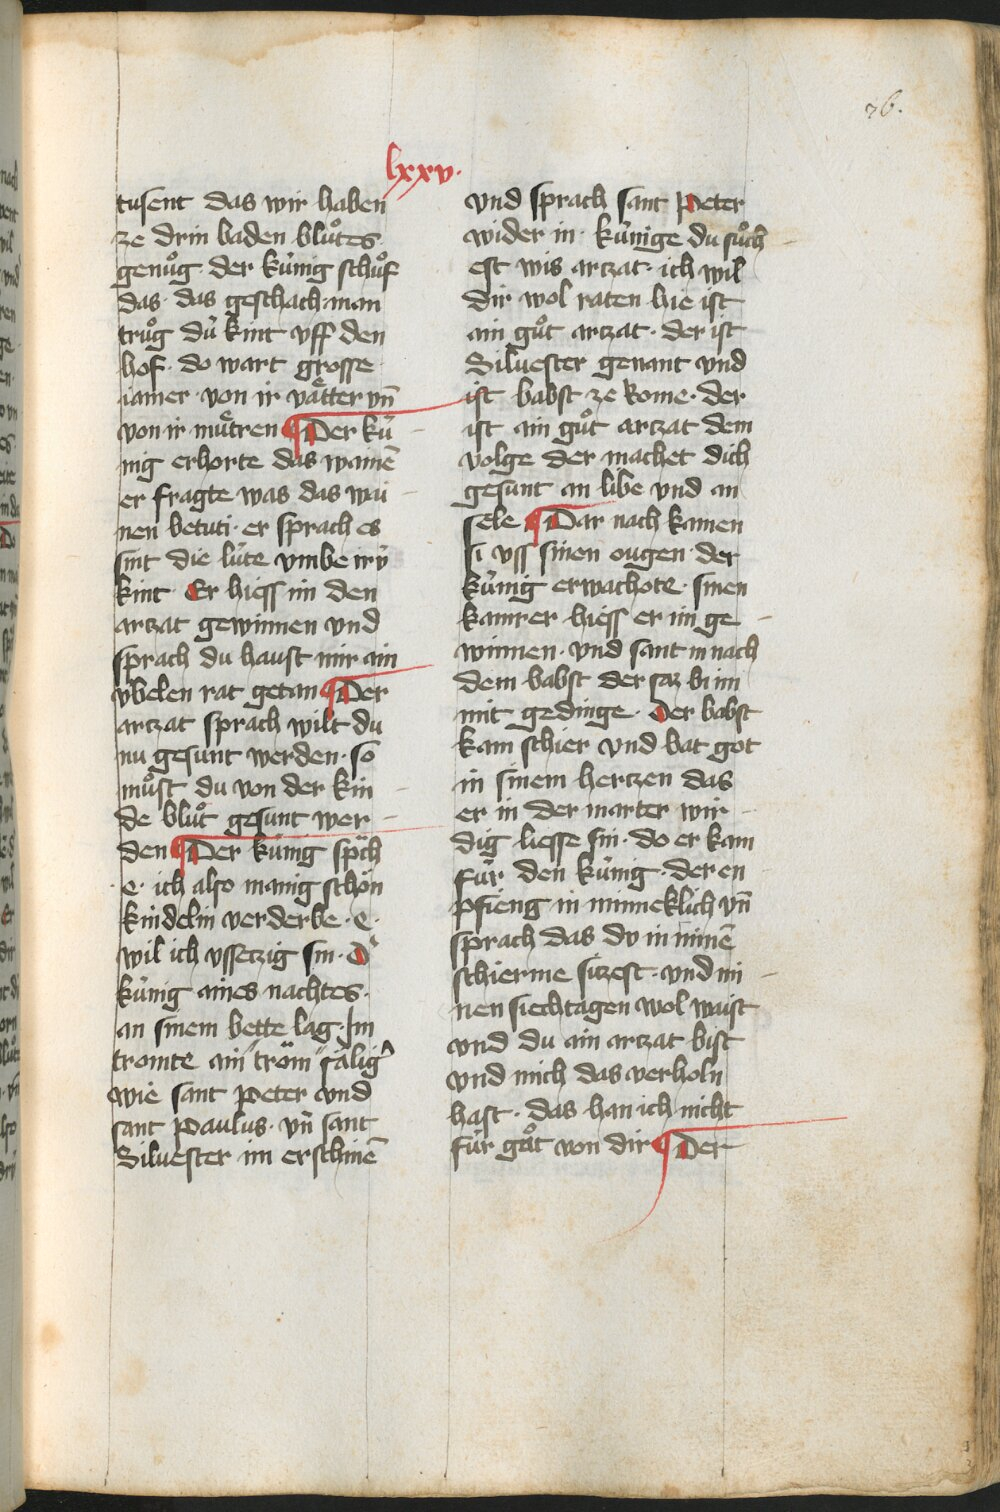 76.
lxxv.
tusent das wir haben
ze drin baden bluͦtes
genuͦg der kúnig schuͦf
das · das geschach · man
truͦg dú kint vff den
hof · do wart grosse
iamer · von ir vaͤtter vn̄
von ir muͤtren ¶ Der kú
nig erhorte das wainē
er fragte was das wai
nen betuti · er sprach es
sint die lúte vmbe irú
kint · Er hiess im den
artzat gewinnen vnd
sprach du haust mir ain
vbelen rat getan ¶ Der
artzat sprach wilt du
nu gesunt werden · so
muͦst du von der kin
de bluͦt gesunt wer
den ¶ Der kúnig spͣch
e · ich also manig schoͤn
kindelin verderbe · e ·
wil ich vssetzig sin · Dͬ
kúnig aines nachtes ·
an sinem bette lag · Im
tromte ain troͮm
wie sant peter vnd
sant paulus · vn̄ sant
Siluester im erschinē
vnd sprach sant peter
wider in · kúnige du suͦch
est wis artzat · ich wil
dir wol raten hie ist
ain guͦt artzat · der ist
Siluester genant vnd
ist babst ze Rome · der
ist ain guͦt artzat dem
volge der machet dich
gesunt an libe vnd an
sele ¶ Dar nach kamen
si vss sinen ougen · der
kúnig erwachote · sinen
kamrer hiess er im ge
winnen · vnd sant in nach
dem babst der saz bi im
mit gedinge · Der babst
kam schier vnd bat got
in sinem hertzen das
er in der marter wir
dig liesse sin · do er kam
fúr den kúnig · der en
pfieng in minneklich vn̄
sprach das dv in minē
schierme sitzest · vnd mi
nen siechtagen wol waist
vnd du ain artzat bist
vnd mich das verholn
hast · das han ich nicht
fúr guͦt von dir ¶ Der